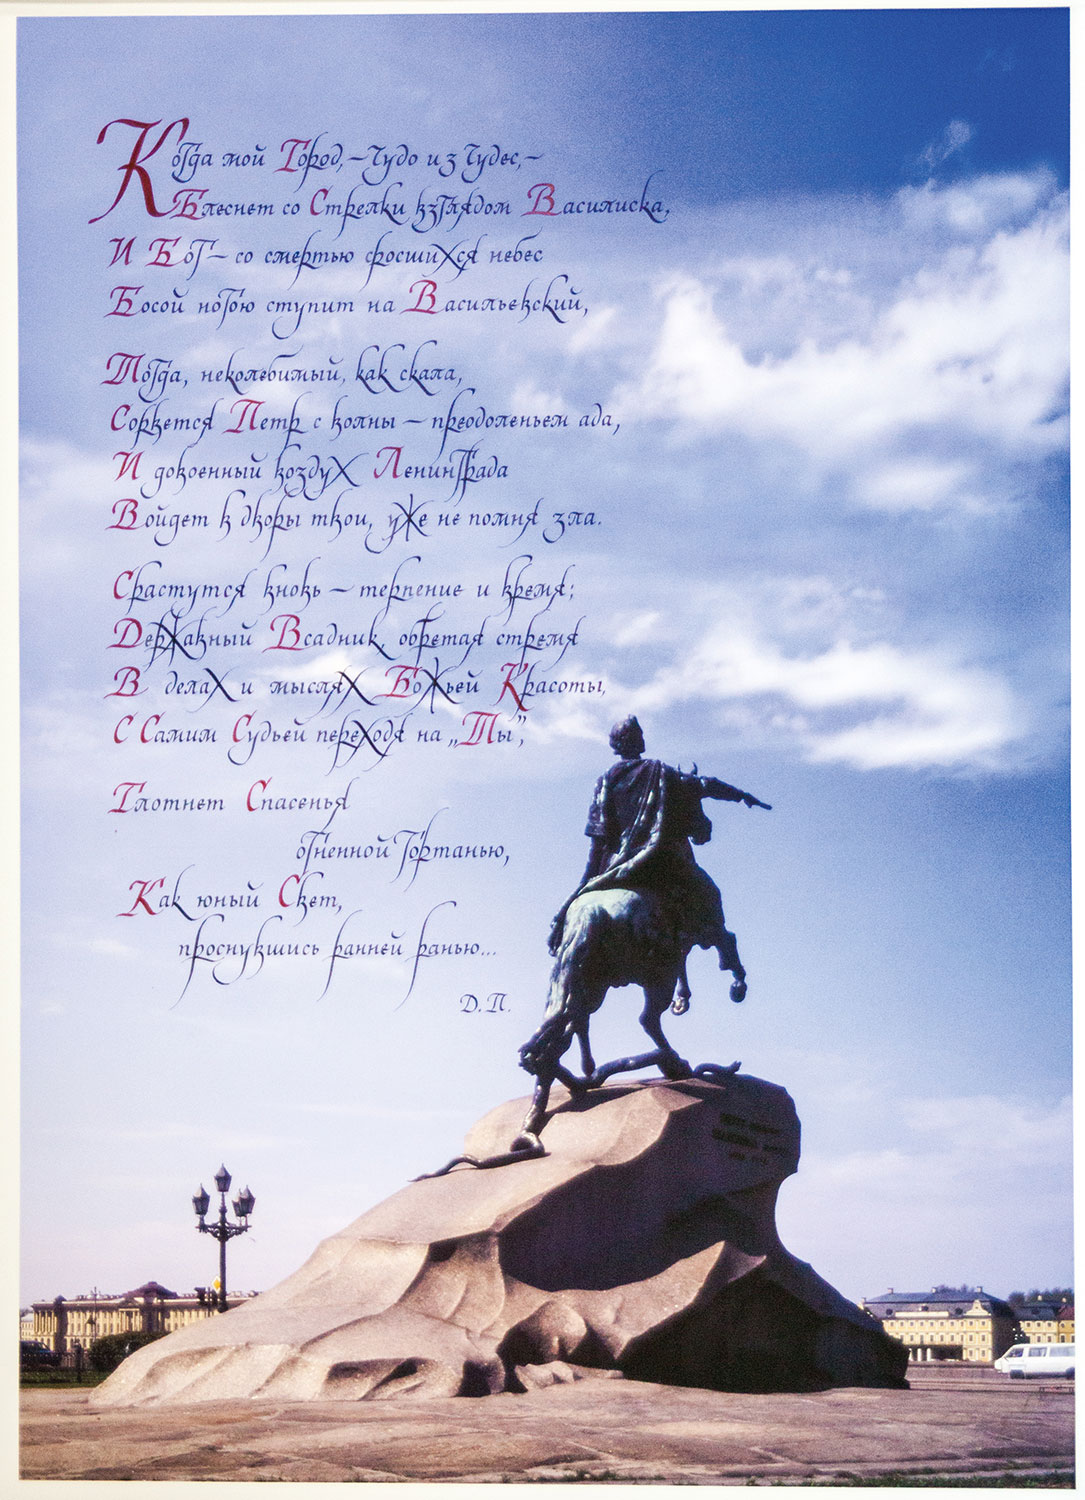 Когда мой Город, – Чудо из Чудес, –
Блеснет со Стрелки взглядом Василиска,
И Бог – со смертью сросшихся небес
Босой ногою ступит на Васильевский,
Тогда, неколебимый, как скала,
Сорвется Петр с волны – преодоленьем ада,
И довоенный воздух Ленинграда
Войдет в дворы твои, уже не помня зла.
Срастутся вновь – терпение и время;
Державный Всадник, обретая стремя
В делах и мыслях Божьей Красоты,
С Самим Судьей переходя на „Ты”,
Глотнет Спасенья
огненной гортанью,
Как юный Свет,
проснувшись ранней ранью...
Д. П.